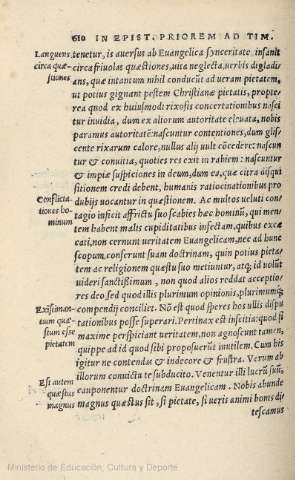 610 IN EPIST. PRIOREM AD TIM.
Languens
circa quæ-
stiones
tenetur, is auersus ab Euangelica synceritate, insanit
circa friuolas quæstiones, uita neglecta, uerbis digladi
ans, quæ intantum nihil conducũt ad ueram pietatem,
ut potius gignant pestem Christianæ pietatis, propte
rea quod ex huiusmodi rixosis concertationibus nasci
tur inuidia, dum ex altorum autoritate eleuata, nobis
paramus autoritatẽ: nascuntur contentiones, dum glis
cente rixarum calore, nullus alij uult cõcedere: nascun
tur & conuitia, quoties res exit in rabiem: nascuntur
& impiæ suspiciones in deum, dum ea, quæ citra disqui
sitionem credi debent, humanis ratiocinationibus pro
dubijs uocantur in quæstionem. Ac multos ueluti con
Conflicta-
tiones ho-
minum
tagio inficit affrictu suo scabies hæc hominũ, qui men
tem habent malis cupiditatibus infectam, quibus excæ
cati, non cernunt ueritatem Euangelicam, nec ad hunc
scopum, conferunt suam doctrinam, quin potius pieta-
tem ac religionem quæstu suo metiuntur, atq; id uolũt
uideri sanctissimum, non quod alios reddat acceptio/
res deo, sed quod illis plurimum opinionis, plurimumq;
Existiman-
tum quæ-
stum esse
pietatem
compendij conciliet. Nõ est quod speres hos illis dispu
tationibus posse superari. Pertinax est inscitia: quod si
maxime perspiciant ueritatem, non agnoscunt tamen,
quippe ad id quod sibi proposuerũt inutilem. Cum is
igitur ne contendas & indecore & frustra. Verum ab
illorum conuictu te subducito. Venentur illi lucrũ suũ,
Est autem
quæstus
magnus
cauponentur doctrinam Euangelicam. Nobis abunde
magnus quæstus sit, si pietate, si ueris animi bonis di
tescamus
Ministerio de Educación, Cultura y Deporte